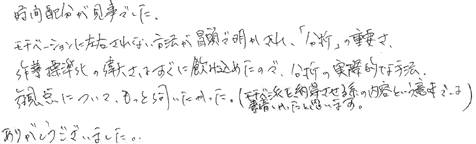 時間配分が見事でした。
モチベーションに左右されない方法が冒頭で明かされ、「分析」の重要さ、
作業標準化の偉大さはすぐに飲み込めたので、分析の実際的な手法、
観点について、もっと伺いたかった。(モチベ派を納得させる為の内容という意味では
素晴しかったと思います。)
ありがとうございました。